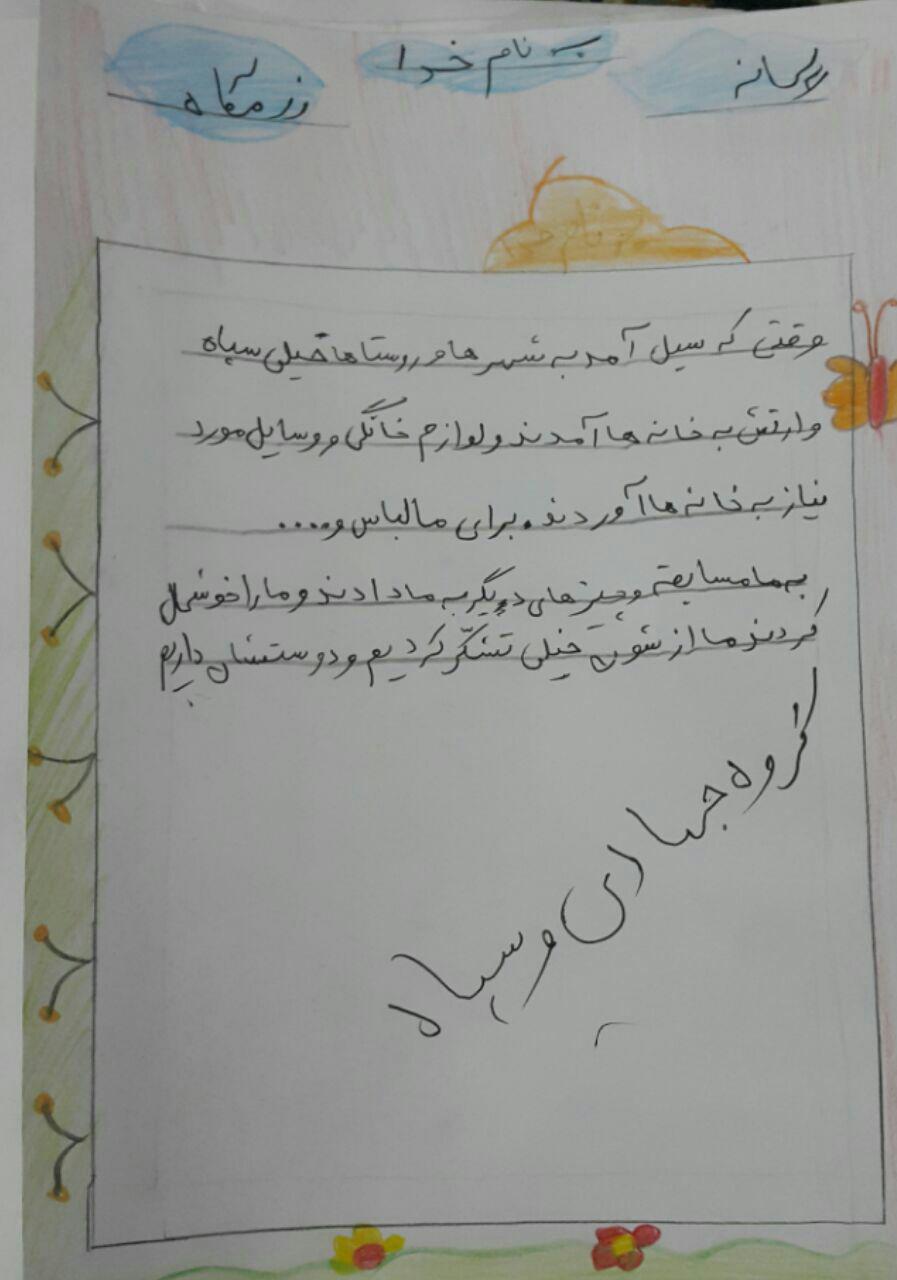 ریحانه
به نام خدا
رزمگاه
به نام خدا
وقتی که سیل آمد به شهر ها و روستاها خیلی سپاه
و ارتش به خانه ها آمدند و لوازم خانگی و وسایل مورد
نیاز به خانه ها آوردند. برای ما لباس و....
به ما مسابقه و چیزهای دیگر به ما دادند و ما را خوشحال
کردند ما از شون خیلی تشکّر کردیم و دوستشان داریم
گروه جهادی و سپاه